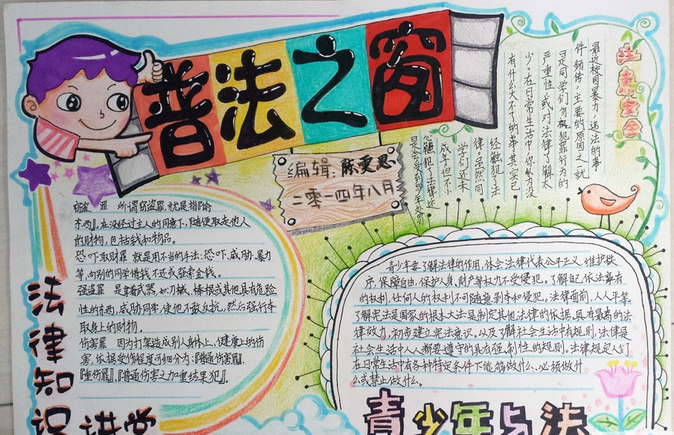 普法之窗
编辑：陈雯思
二零一四年八月
注意安全
最近校园暴力，违法的事
件频传，主要的原因之一就
是同学们勿视犯罪行为的
严重性，或对法律了解太
少。在日常生活中，你认为没
有什么大不了的事，其实已
经触犯了法
律。虽然同
学们还未
成年，但不
窃盗罪 所谓窃盗罪，就是指「偷
东西」。在没经过主人的同意下，随便取走他人
的财物，包括钱和物品。
恐吓取财罪 就是用不当的手法：恐吓、威胁、暴力
等，向别的同学借钱不还或强索金钱。
强盗罪 是拿武器，如刀械、棒棍或其他具有危
险性的东西，威胁同学，使他不敢反抗，然后强行夺
取身上的财物。
伤害罪 因为打架造成别人身体上、健康上的伤
害，依据受伤程度可细分为：「普通伤害罪」、
「重伤罪」、「普通伤害之加重结果犯」。
法律知识讲堂
青少年要了解法律的作用，体会法律代表公平正义，维护秩
序，保障自由，保护人身、财产等权力不受侵犯，了解自己依法享有
的权利，任何人的权利不可随意剥夺和侵犯，法律面前，人人平等。
了解宪法是国家的根本大法，是制定其他法律的依据，具有最高的法
律效力，初步建立宪法意识，以及了解社会生活中有规则，法律是
社会生活中人人都要遵守的具有强制性的规则。法律规定人们
在日常生活中有各种特定条件下能够做什么、必须做什
么或禁止做什么。
青少年与法